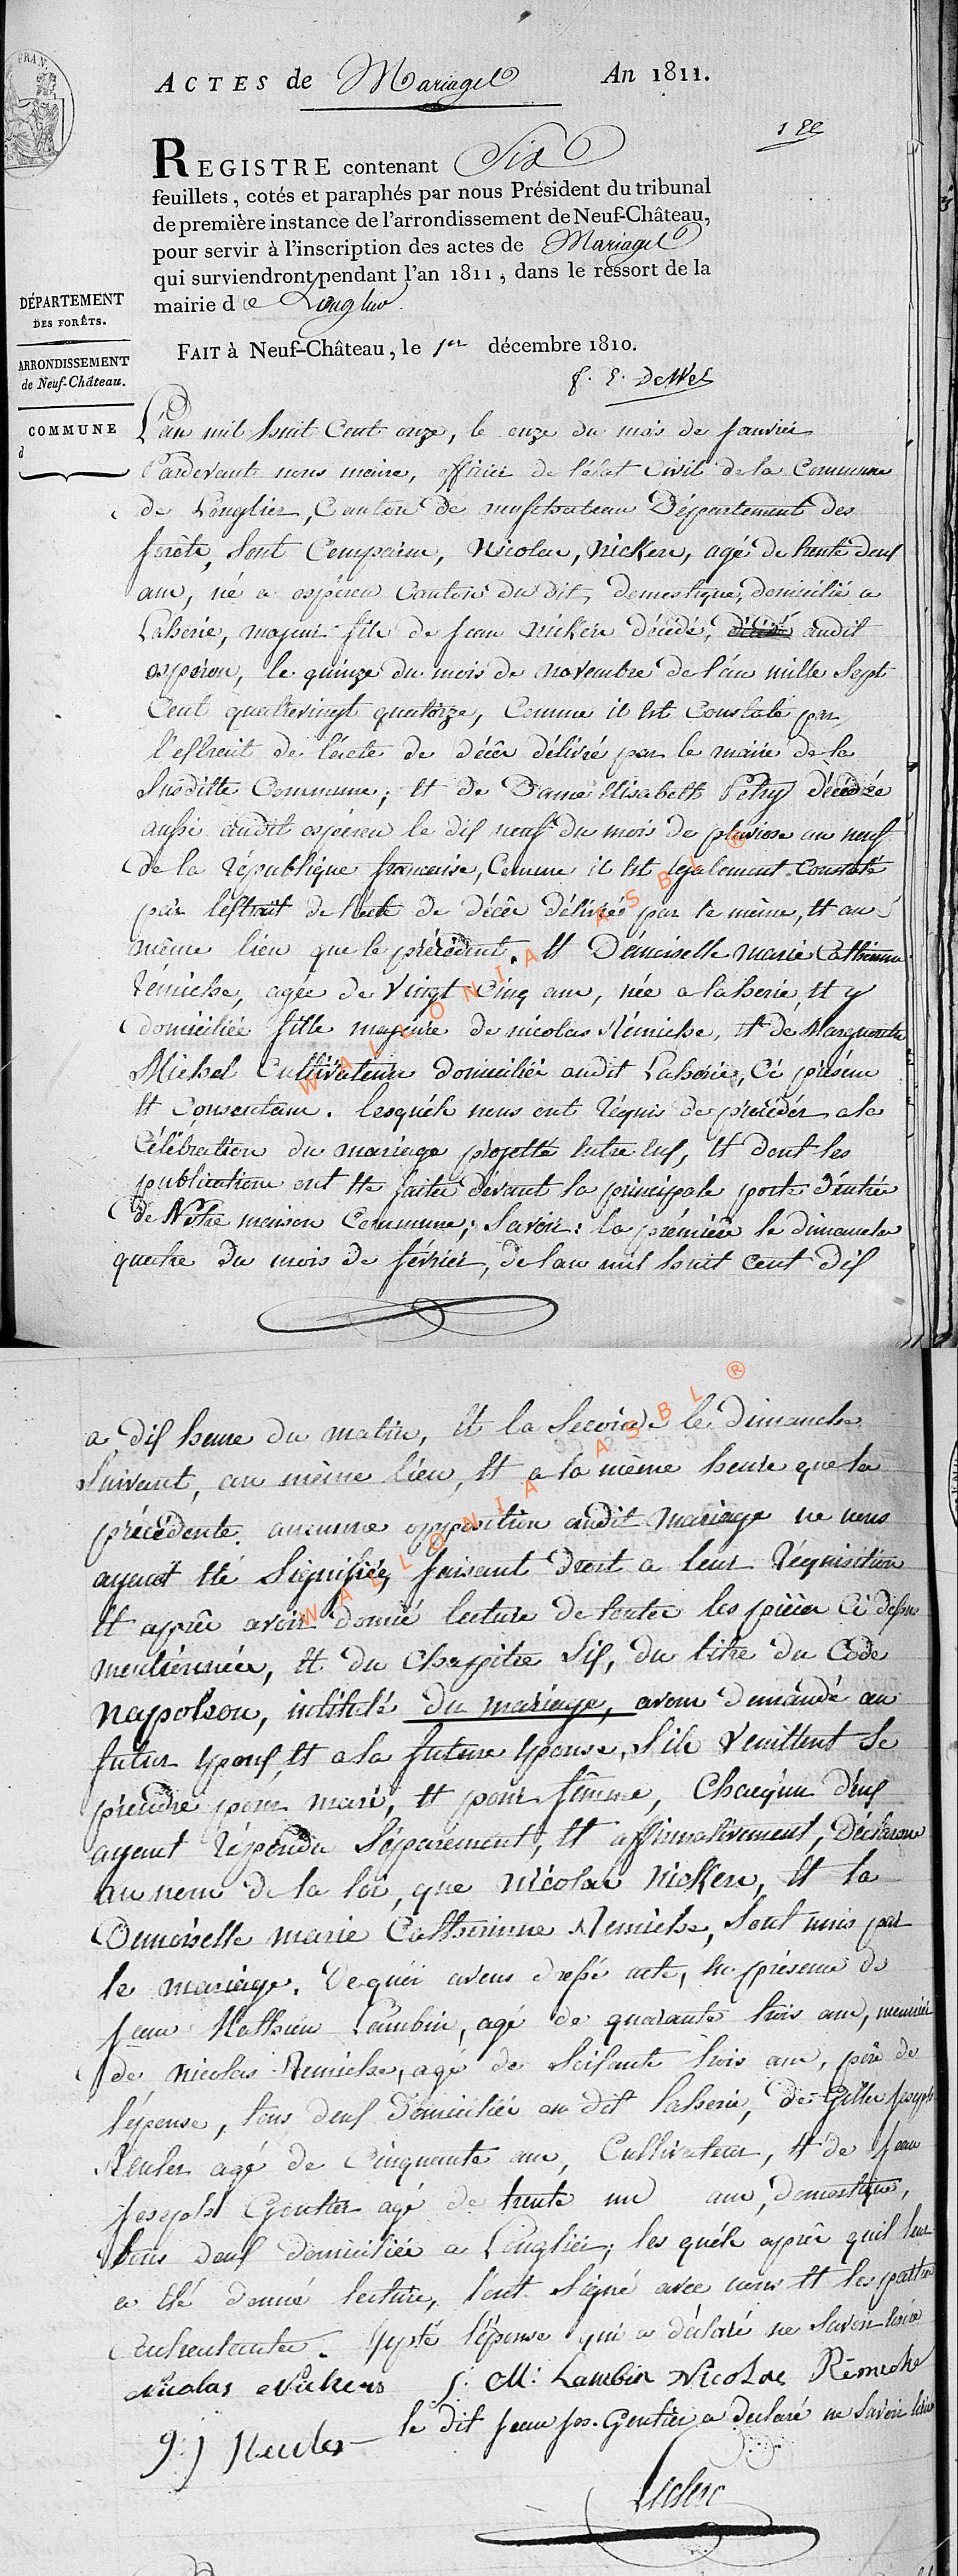 FRAN.
ACTES de Mariages An 1811.
REGISTRE contenant Six
feuillets, cotés et paraphés par nous Président du tribunal
de première instance de l'arrondissement de Neuf-Château,
pour servir à l'inscription des actes de Mariages
qui surviendront pendant l'an 1811, dans le ressort de la
mairie de Longlier.
DÉPARTEMENT
DES FORÊTS.
ARRONDISSEMENT
de Neuf-Château.
COMMUNE
d
FAIT à Neuf-Château, le 1er décembre 1810.
L'an mil huit Cent onze, le onze du mois de janvier
Pardevant nous maire, officier de l'état Civil de la Commune
de Longlier, Canton de neufchateau Département des
forêts, sont Comparus, Nicolas, Nickers, agé de trente deux
ans, né a ospéren Canton du dit, domestique, domicilié a
Laherie, majeur fils de jean Nickers décédé, audit
ospéren, le quinze du mois de novembre de l'an mille sept
Cent quatrevingt quatorze, Comme il est Constaté par
l'extrait de l'acte de décès délivré par le maire de la
susditte Commune; et de Dame Elisabeth Petry décédée
aussi audit ospéren le dix neuf du mois de pluviose an neuf
de la république française, Comme il est également Constaté
par l'extrait de l'acte de décès délivré par le même, et au
même lieu que le précédent. et Démoiselle marie Catherinne
Rémiche, agée de vingt Cinq ans, née a laherie, et y
domiciliée fille majeure de nicolas Rémiche, et de Margueritte
Michel Cultivateurs domiciliés audit Laherie, Ci présens
et Consentans. lesquéls nous ont réquis de procéder a la
Célébration du mariage projetté entre eux, et dont les
publications ont été faites devant la principale porte d'entrée
de Notre maison Commune; Savoir: la prémière le dimanche
quatre du mois de février, de l'an mil huit cent dix
a dix heures du matin, et la seconde le Dimanche
suivant, au même lieu, et a la même heure que la
précédente. aucunne opposition audit mariage ne nous
ayant été signifiée, faisant droit a leur réquisition
et après avoir donné lecture de toutes les pièces Ci dessus
mentionnées, et du Chapitre six, du titre du Code
Napoléon, intitulé du mariage, avons demandé au
futur époux, et a la future épouse, s'ils veuillent se
prendre pour mari, et pour fémme, Chacqu'un d'eux
ayant répondu séparement, et affirmativement, Déclarons
au nom de la loi, que Nicolas Nickers, et la
Démoiselle marie Catherinne Rémiche, sont unis par
le mariage. De quoi avons dressé acte, en présence de
jean Mathieu Lambin, agé de quarante trois ans, meunier
de nicolas Remiche, agé de soixante trois ans, père de
l'épouse, tous deux domiciliés au dit laherie, de Gilles joseph
Reuler agé de Cinquante ans, Cultivateur, et de jean
joseph Gentier agé de trente un ans, domestique,
tous deux domiciliés a Longlier; les quéls après qu'il leur
a été donné lecture, l'ont signé avec nous et les parties
Contractantes. Excepté l'épouse qui a déclaré ne savoir écrire
Nicolas Nickers J: M: Lambin Nicolas Rémiche
le dit jean jos. Gentier a declaré ne savoir écrire
g: j Reuler
Leclerc
WALLONIA ASBL ®
WALLONIA ASBL ®